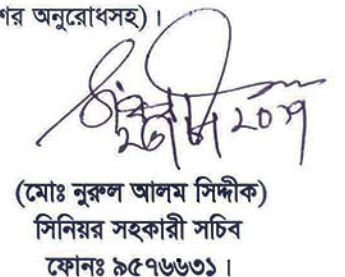 শর অনুরোধসহ)।
(মোঃ নুরুল আলম সিদ্দীক)
সিনিয়র সহকারী সচিব
ফোনঃ ৯৫৭৬৬৩১।